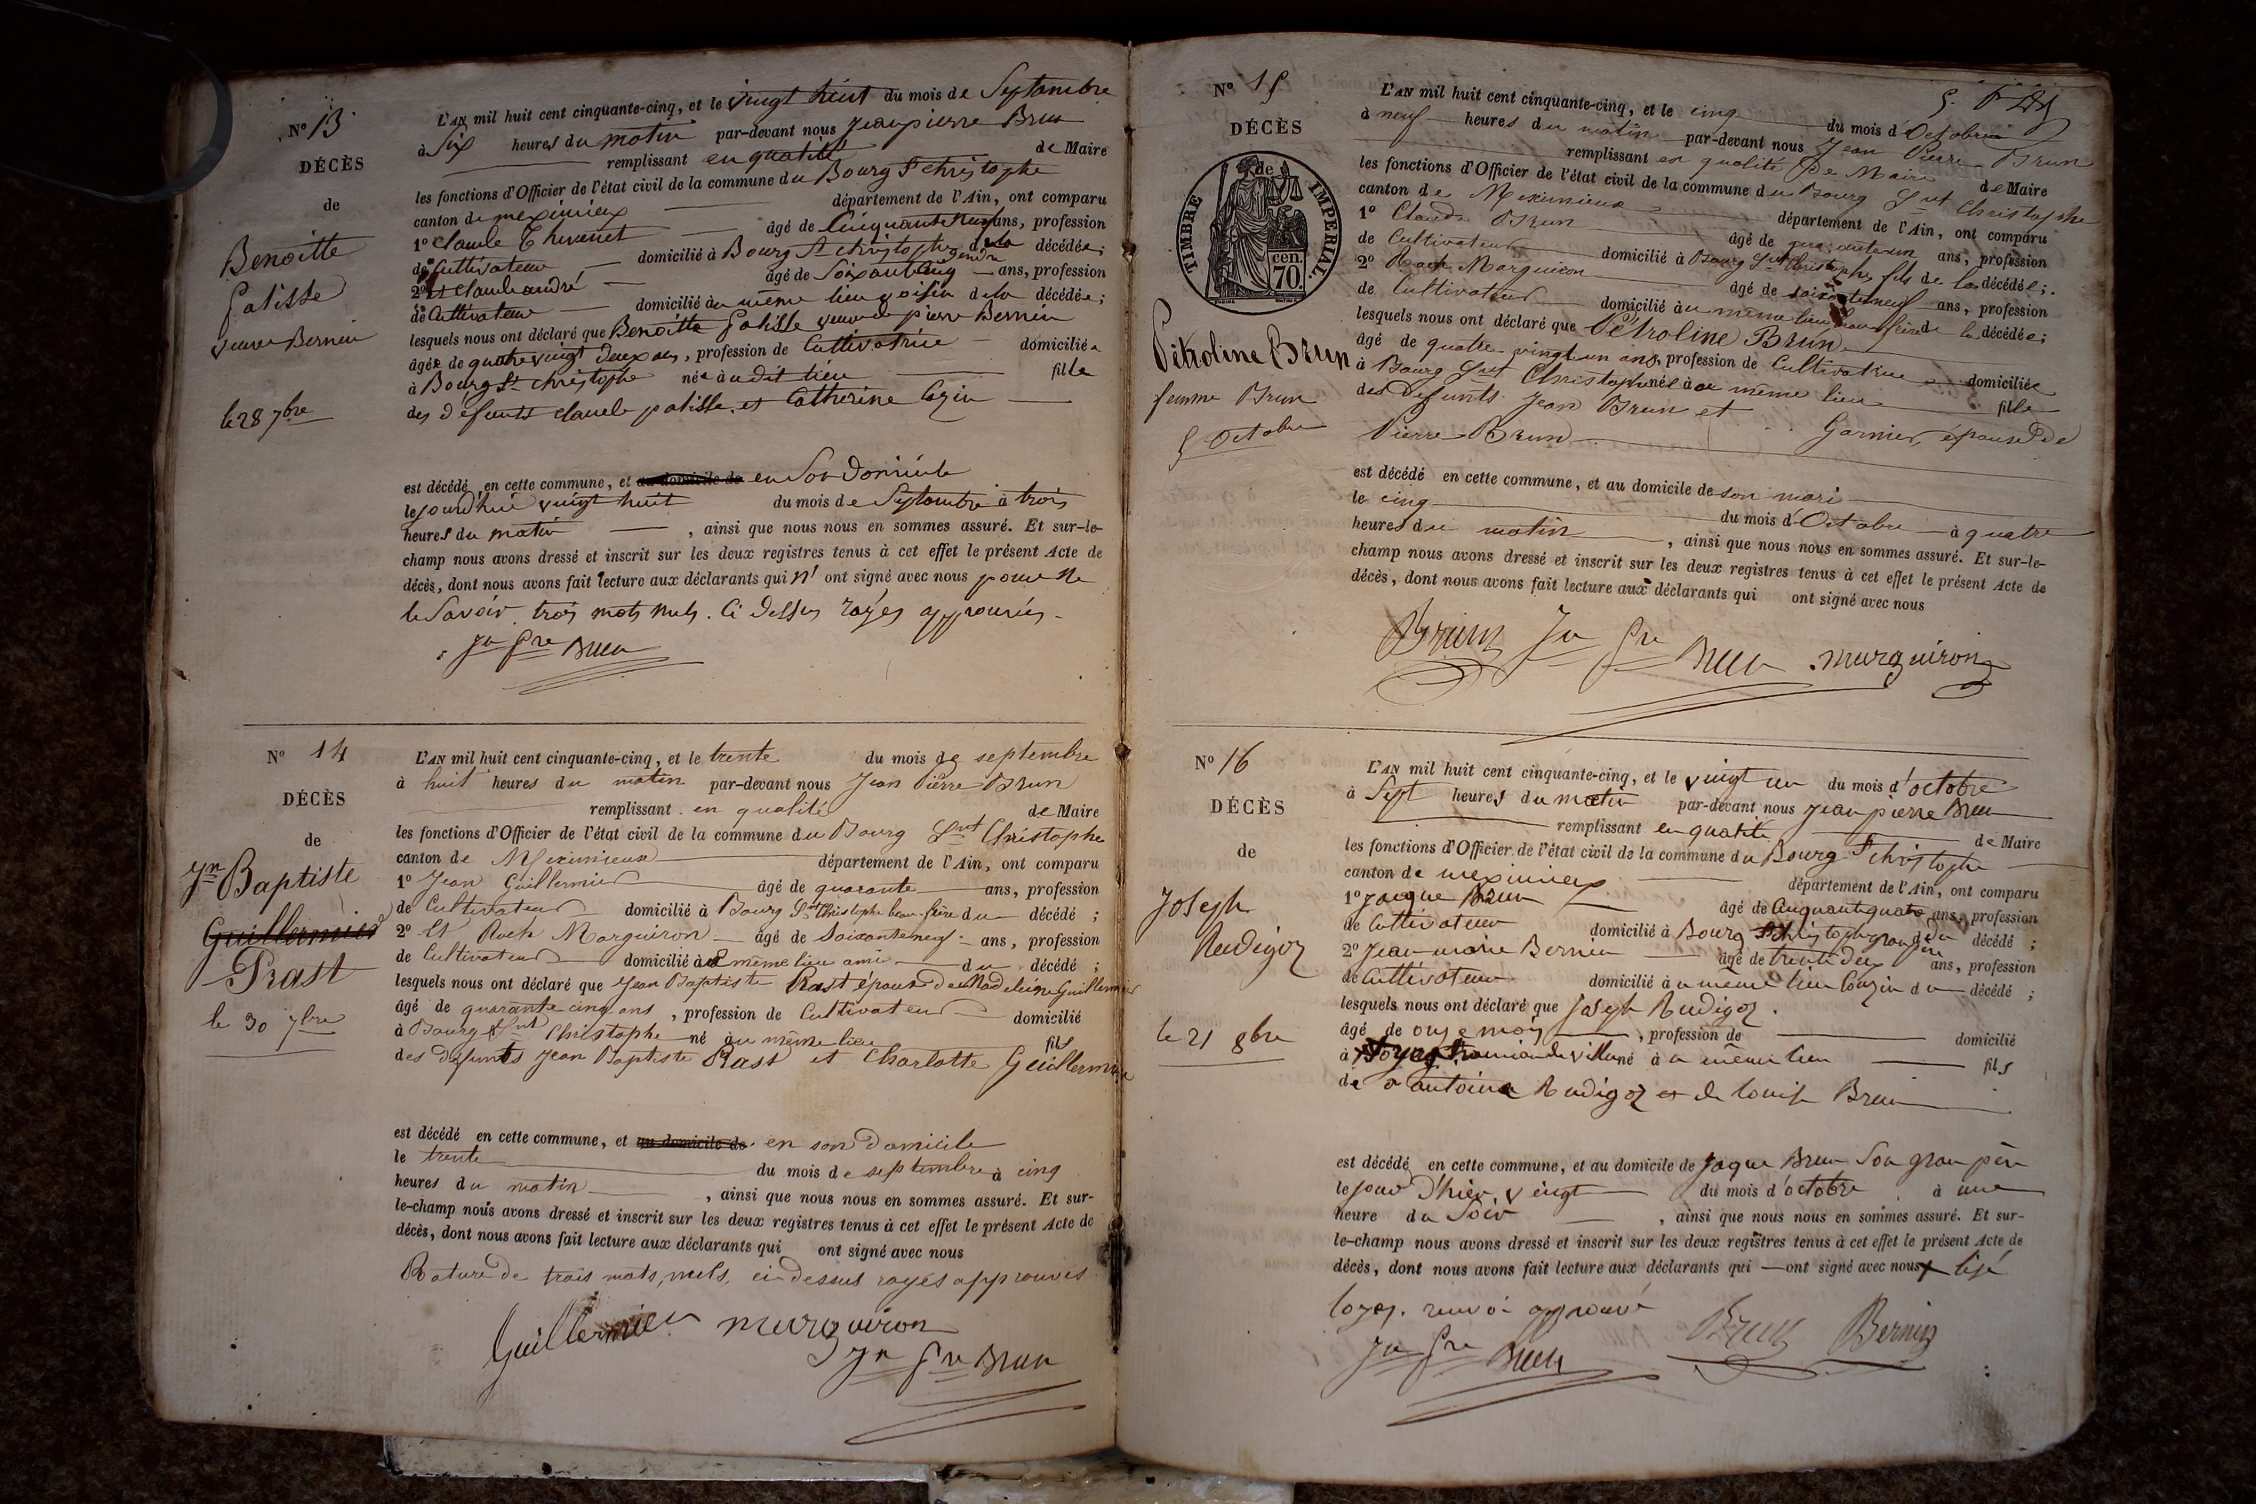 N° 13
DÉCÈS
de
Benoitte
Patisse
veuve Bernin
le 28 7bre
L'AN mil huit cent cinquante-cinq, et le vingt huit du mois de Septambre
à Six heures du matin par-devant nous jean pierre Brun
remplissant en qualité de Maire
les fonctions d'Officier de l'état civil de la commune du Bourg St christophe
canton de meximieux département de l'Ain, ont comparu
1° Claude Thivenet âgé de Cinquante neuf ans, profession
de Cultivateur domicilié à Bourg St christophe gendre de la décédée;
2° et Claude andré âgé de Soixante cinq ans, profession
de Cultivateur domicilié au même lieu voisin de la décédée;
lesquels nous ont déclaré que Benoitte Patisse veuve de pierre Bernin
âgée de quatre vingt deux ans, profession de Cultivatrice domiciliée
à Bourg St christophe née audit lieu fille
des défunts claude patisse et Catherine Cozin
est décédé en cette commune, et au domicile de en Son domicile
le jourd'hui vingt huit du mois de Septambre à trois
heures du matin, ainsi que nous nous en sommes assuré. Et sur-le-
champ nous avons dressé et inscrit sur les deux registres tenus à cet effet le présent Acte de
décès, dont nous avons fait lecture aux déclarants qui n' ont signé avec nous pour ne
le Savoir. trois mots nuls. Ci dessus rayés approuvés.
Jn Pre Brun
N° 14
DÉCÈS
de
Jn Baptiste
Guillermier
Prast
le 30 7bre
L'AN mil huit cent cinquante-cinq, et le trente du mois de septembre
à huit heures du matin par-devant nous Jean Pierre Brun
remplissant en qualité de Maire
les fonctions d'Officier de l'état civil de la commune du Bourg Snt Christophe
canton de Meximieux département de l'Ain, ont comparu
1° Jean Guillermier âgé de quarante ans, profession
de Cultivateur domicilié à Bourg Snt Christophe beau-frère du décédé;
2° et Roch Marguiron âgé de Soixante neuf ans, profession
de Cultivateur domicilié au même lieu ami du décédé;
lesquels nous ont déclaré que Jean Baptiste Rast époux de Madeleine Guillermier
âgé de quarante cinq ans, profession de Cultivateur domicilié
à Bourg Snt Christophe né au même lieu fils
des défunts Jean Baptiste Rast et Charlotte Guillermier
est décédé en cette commune, et au domicile de en son domicile
le trente du mois de septembre à cinq
heures du matin, ainsi que nous nous en sommes assuré. Et sur-
le-champ nous avons dressé et inscrit sur les deux registres tenus à cet effet le présent Acte de
décès, dont nous avons fait lecture aux déclarants qui ont signé avec nous
Rature de trois mots, nuls, ci-dessus rayés approuvés
Guillermier marguiron
Jn Pre Brun
N° 15
DÉCÈS
de
TIMBRE IMPERIAL.
70. cen.
Pétroline Brun
femme Brun
5 Octobre
L'AN mil huit cent cinquante-cinq, et le cinq du mois d'Octobre
à neuf heures du matin par-devant nous Jean Pierre Brun
remplissant en qualité de Maire de Maire
les fonctions d'Officier de l'état civil de la commune du Bourg Snt Christophe
canton de Meximieux département de l'Ain, ont comparu
1° Claude Brun âgé de quarante un ans, profession
de Cultivateur domicilié à Bourg Snt Christophe, fils de la décédée;
2° Roch Marguiron âgé de soixante neuf ans, profession
de Cultivateur domicilié au même lieu beau frère de la décédée;
lesquels nous ont déclaré que Pétroline Brun
âgé de quatre vingt un ans, profession de Cultivatrice domiciliée
à Bourg Snt Christophe née à ce même lieu fille
des défunts Jean Brun et Garnier, épouse de
Pierre Brun
est décédé en cette commune, et au domicile de son mari
le cinq du mois d'Octobre à quatre
heures du matin, ainsi que nous nous en sommes assuré. Et sur-le-
champ nous avons dressé et inscrit sur les deux registres tenus à cet effet le présent Acte de
décès, dont nous avons fait lecture aux déclarants qui ont signé avec nous
Brun Jn Pre Brun marguiron
N° 16
DÉCÈS
de
Joseph
Rudigoz
le 21 8bre
L'AN mil huit cent cinquante-cinq, et le vingt un du mois d'octobre
à Sept heures du matin par-devant nous jean pierre Brun
remplissant en qualité de Maire
les fonctions d'Officier de l'état civil de la commune du Bourg St christophe
canton de meximieux département de l'Ain, ont comparu
1° jaque Brun âgé de Cinquante quatre ans, profession
de Cultivateur domicilié à Bourg St christophe grand père du décédé;
2° jean marie Bernin âgé de trente deux ans, profession
de Cultivateur domicilié au même lieu Cozin du décédé;
lesquels nous ont déclaré que joseph Rudigoz.
âgé de onze mois, profession de domicilié
à né à u même lieu fils
de antoine Rudigoz et de louise Brun
est décédé en cette commune, et au domicile de jaque Brun Son gran père
le jour d'hier vingt du mois d'octobre à une
heure du Soir, ainsi que nous nous en sommes assuré. Et sur-
le-champ nous avons dressé et inscrit sur les deux registres tenus à cet effet le présent Acte de
décès, dont nous avons fait lecture aux déclarants qui ont signé avec nous
loyes. renvoi approuvé
Jn Pre Brun Brun Bernin